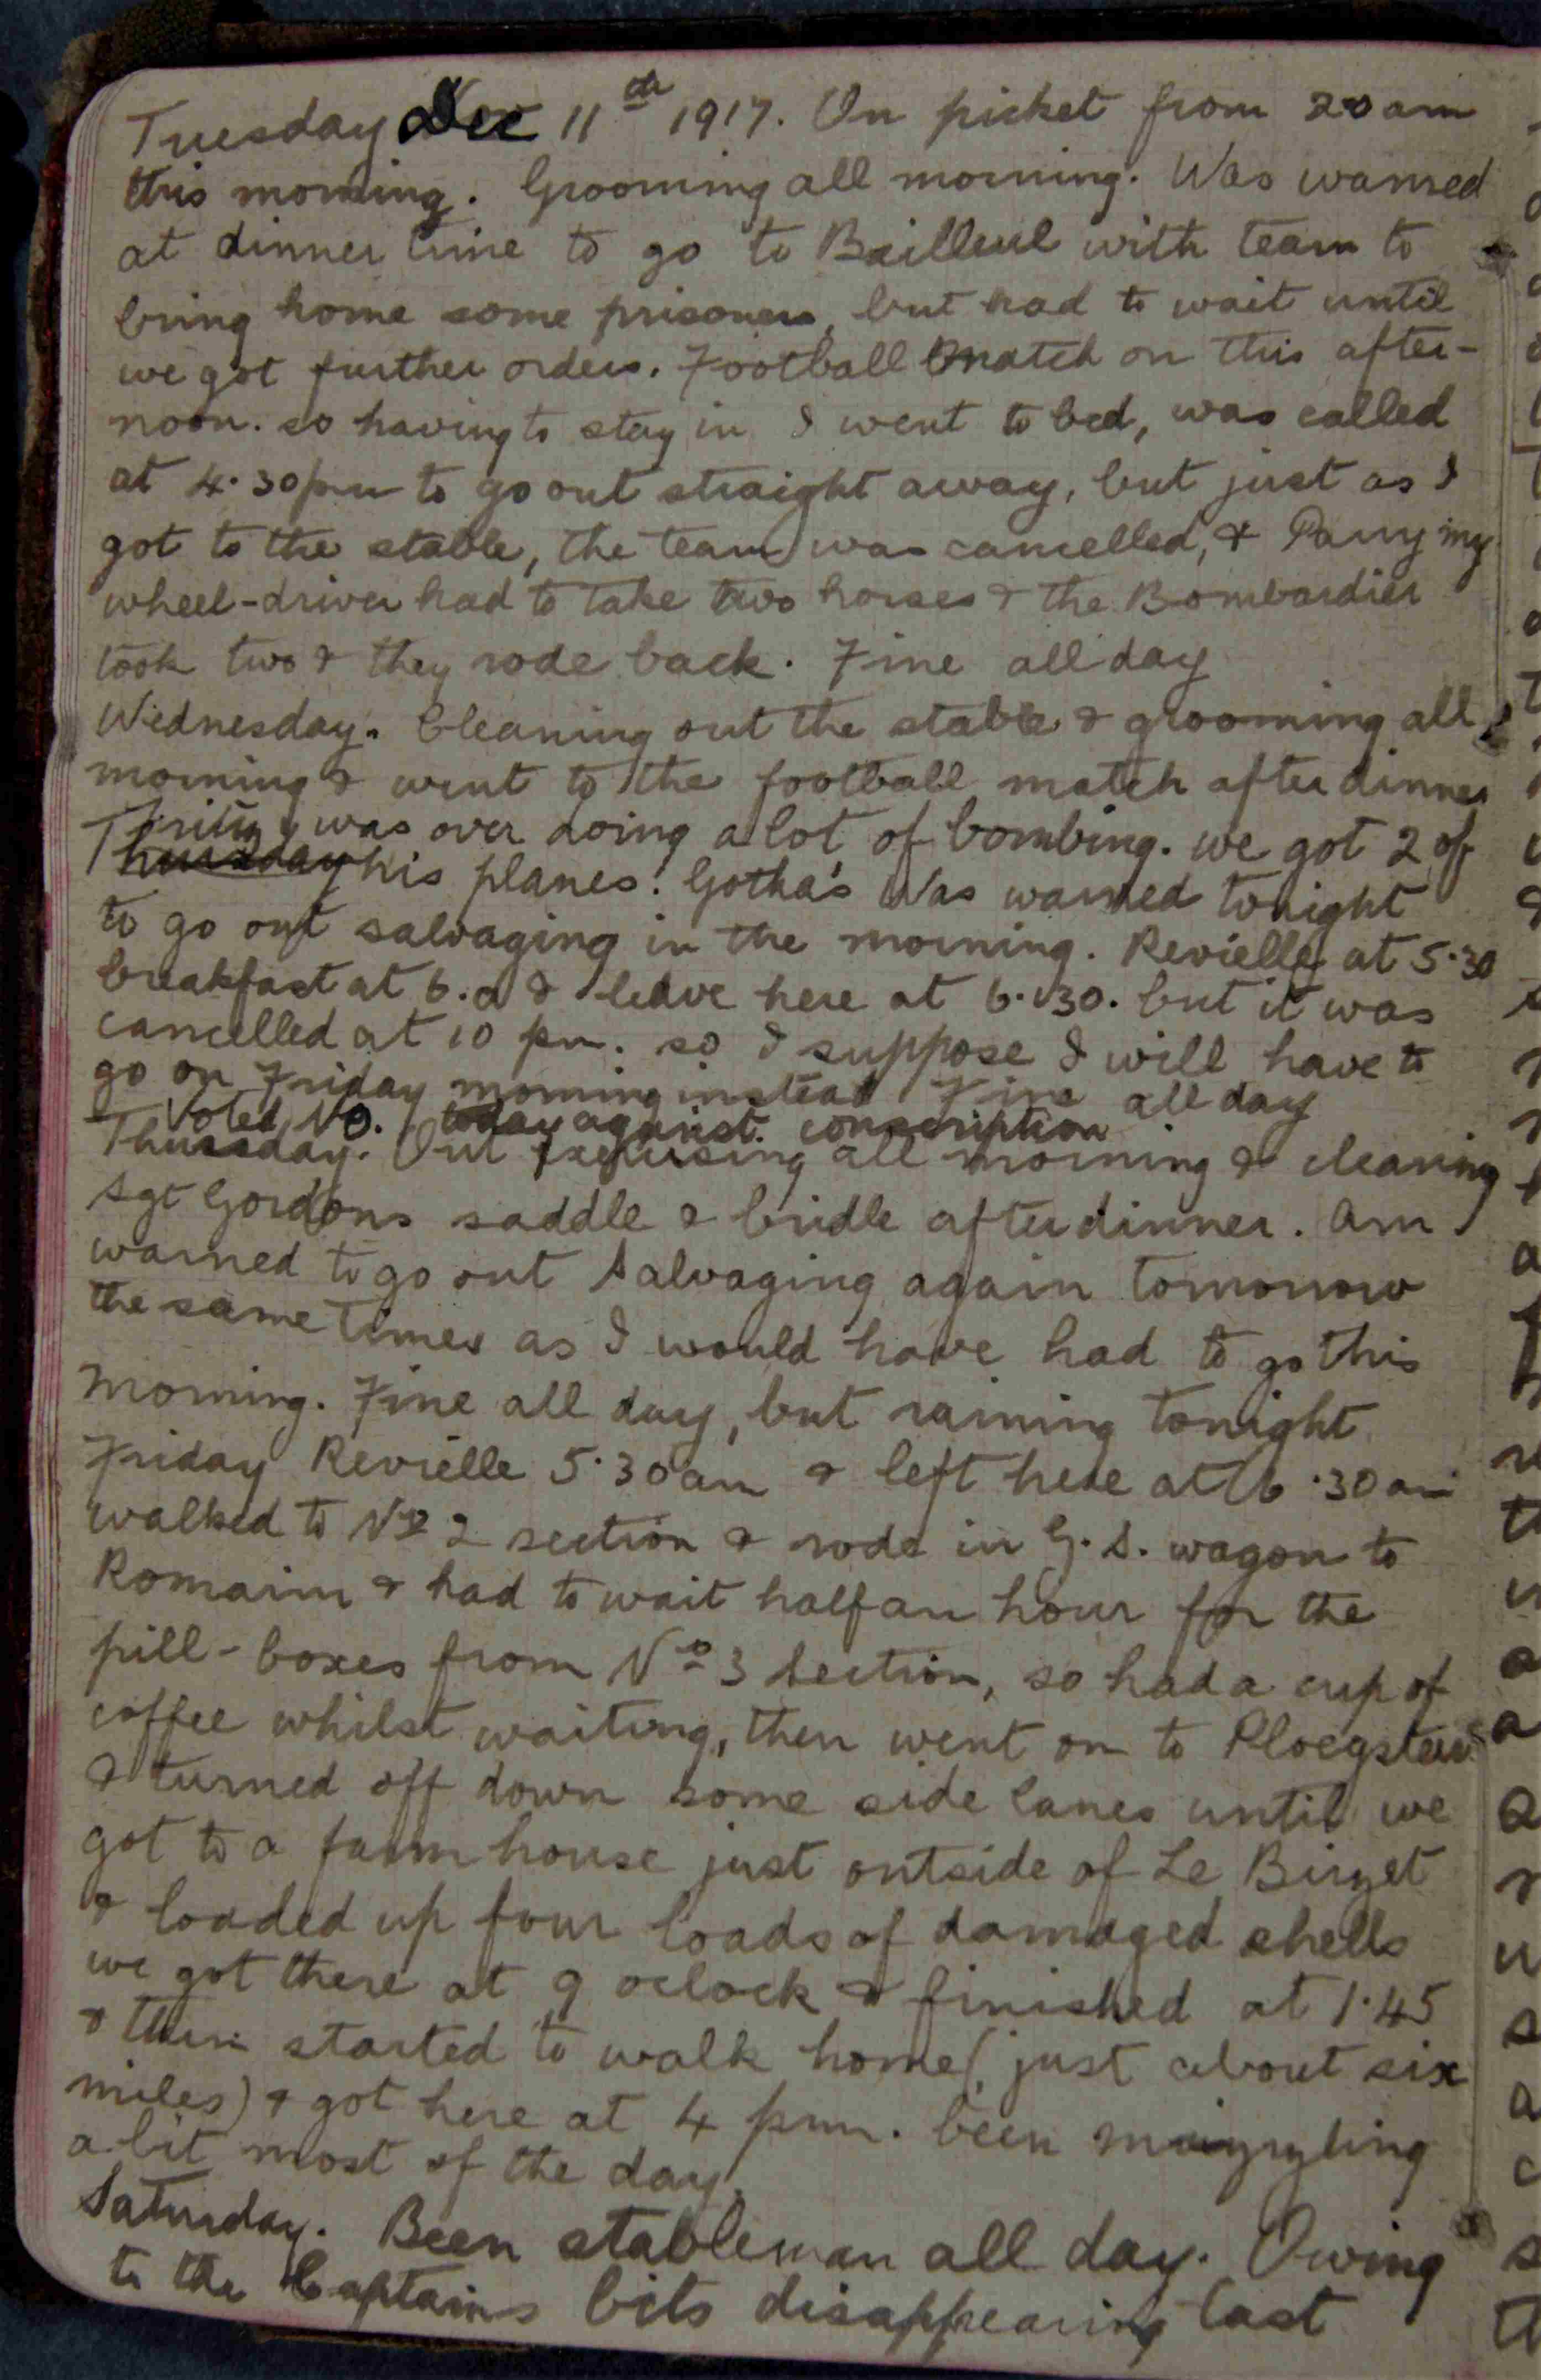 Tuesday Dec 11th 1917. On picket from 2 am
this morning. Grooming all morning. Was warned
at dinner time to go to Bailleul with team to
bring home some prisoners, but had to wait until
we got further orders. Football match on this after-
noon. so having to stay in I went to bed, was called
at 4.30pm to go out straight away, but just as I
got to the stable, the team was cancelled, & Parry my
wheel-driver had to take two horses & the Bombardier
took two & they rode back. Fine all day
Wednesday. Cleaning out the stable & grooming all
morning & went to the football match after dinner
Fritz was over doing a lot of bombing. we got 2 of
Thursday his planes. Gotha's Was warned tonight
to go out salvaging in the morning. Revielle at 5.30
breakfast at 6.0 & leave here at 6.30. but it was
cancelled at 10 pm. so I suppose I will have to
go on Friday morning instead Fine all day
Voted NO. today against conscription
Thursday. Out exercising all morning & cleaning
Sgt Gordons saddle & bridle after dinner. Am
warned to go out salvaging again tomorrow
the same times as I would have had to go this
morning. Fine all day, but raining tonight
Friday Revielle 5.30am & left here at 6.30am
walked to No 2 section & rode in G.S. wagon to
Romarin & had to wait half an hour for the
pill-boxes from No 3 Section, so had a cup of
coffee whilst waiting, then went on to Ploegsteert
& turned off down some side lanes until we
got to a farm house just outside of Le Birzet
& loaded up four loads of damaged shells
we got there at 9 oclock & finished at 1.45
& then started to walk home (just about six
miles) & got here at 4 pm. been
a bit most of the day.
Saturday. Been stableman all day. Owing
to the Captains bits disappearing last